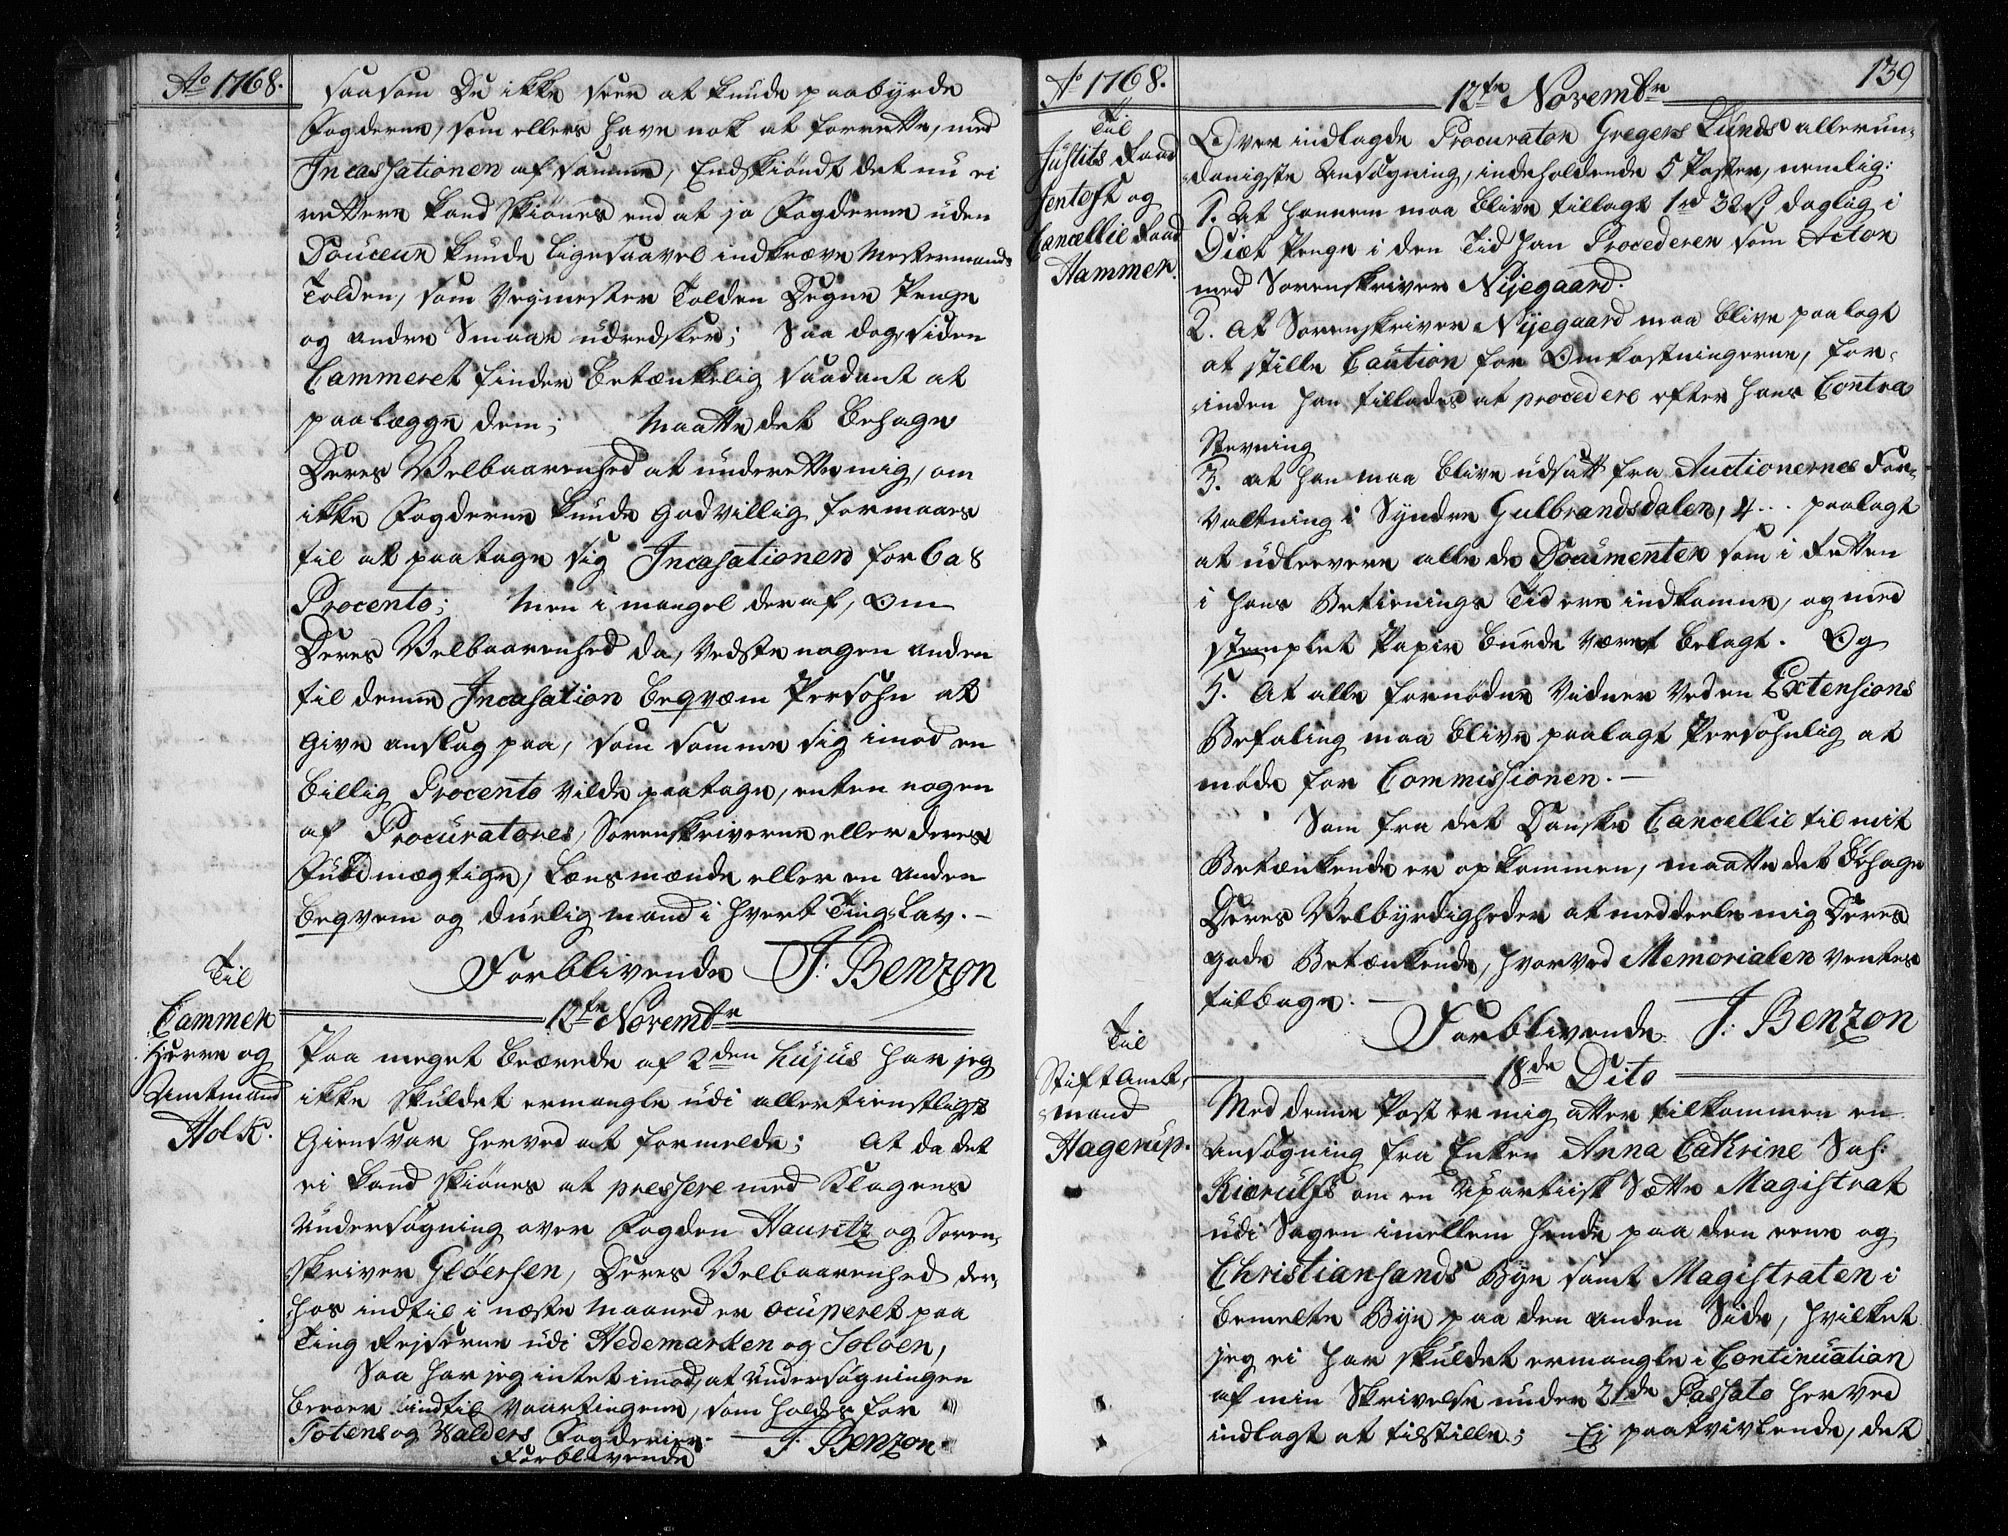 Ao 1768.
saasom De ikke seer at kunde paabyrde
Fogderne, som ellers have nok at forrette, med
Incassationen af samme, Endskiøndt det nu ei
rettere kand skiønes end at jo Fogderne uden
Douceur kunde ligesaavel indkræve Mestermands
Tolden, som Vegmester Tolden Degne Penge
og andre Smaae udredsler; Saa dog, siden
Cammeret finder Betænkelig saadant at
paalægge dem; Maatte det Behage
Deres Velbaarenhed at underrette mig, om
ikke Fogderne kunde godvillig formaaes
til at paatage sig Incasationen for 6 a 8
Procento; Men i mangel deraf, Om
Deres Velbaarenhed da, Vedste nogen anden
til denne Incasation beqvæm Persohn at
give anslag paa, som samme sig imod en
billig Procento vilde paatage, enten nogen
af Procuratores, Sorenskriverne eller deres
Fuldmægtige, Lænsmænde eller en anden
beqvem og duelig mand i hvert Ting-Lav.-
Forblivende J: Benzon
Til
Cammer
Herre og
Amtmand
Holk.
12te Novembr
Paa meget beærede af 2den hujus har jeg
ikke skuldet ermangle udi allertienstligst
Giensvar herved at formelde; At da det
ei kand skiønes at pressere med Klagens
Undersøgning over Fogden Hauritz og Soren-
skriver Gløersen, Deres Velbaarenhed der-
hos indtil i næste Maaned er ocuperet paa
Ting Rejserne udi Hedemarken og Soloer,
Saa har jeg intet imod, at Undersøgningen
beroer indtil Vaartingene, som holdes for
Totens og Walders Fogderier.
Forblivende J. Benzon.
Ao 1768.
139
12te Novembr
Til
Justits Raad
Jentoft og
Cancellie Raad
Hammer.
Over indlagde Procurator Gregers Lunds allerun-
danigste Ansøgning, indeholdende 5 Poster, nemlig:
1. At hannem maa blive tillagt 1rd 32s daglig i
Diæt Penge i den Tid han Procederer som Actor
med Sorenskriver Nijegaard.
2. At Sorenskriver Nijegaard maa blive paalagt
at stille Caution for Omkostningerne, for-
inden han tillades at procedere efter hans Contra
Stevning
3. at han maa blive udsatt fra Auctionernes For-
valtning i Syndre Gulbrandsdalen, 4... paalagt
at udlevere alle de Documenter som i Retten
i hans Betienings Tid ere indkomne, og med
stemplet Papir burde været belagt. Og
5. At alle fornødne Vidner ved en Extensions
Befaling maa blive paalagt Persohnlig at
møde for Commissionen.-
Som fra det Danske Cancellie til mit
Betænkende er opkommen, maatte det Behage
Deres Velbyrdigheder at meddeele mig Deres
gode Betænkende, hvorved Memorialen ventes
tilbage.-
Forblivende J: Benzon
Til
Stiftamt-
mand
Hagerup.
18de Dito
Med denne Post er mig atter tilkommen en
Ansøgning fra Enken Anna Cathrine Sal:
Kierulfs om en Upartiisk Sætte Magistrat
udi Sagen imellem hende paa den eene og
Christiansands Bye samt Magistraten i
bemelte Bye paa den anden Side, hvilket
jeg ei har skuldet ermangle i Continuation
af min Skrivelse under 21de Passato herved
indlagt at tilstille; Ej paatvivlende, det